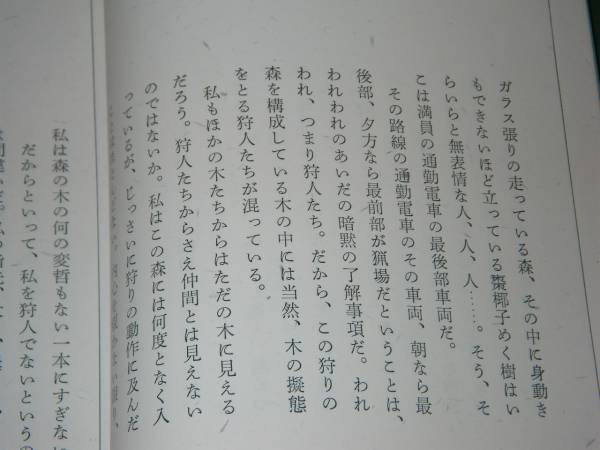 ガラス張りの走っている森、その中に身動き
もできないほど立っている棗椰子めく樹はい
らいらと無表情な人、人、人……。そう、そ
こは満員の通勤電車の最後部車両だ。
その路線の通勤電車のその車両、朝なら最
後部、夕方なら最前部が猟場だということは、
われわれのあいだの暗黙の了解事項だ。われ
われ、つまり狩人たち。だから、この狩りの
森を構成している木の中には当然、木の擬態
をとる狩人たちが混っている。
私もほかの木たちからはただの木に見える
だろう。狩人たちからさえ仲間とは見えない
のではないか。私はこの森には何度となく入
っているが、じっさいに狩りの動作に及んだ
私は森の木の何の変哲もない一本にすぎない
だからといって、私を狩人でないというの